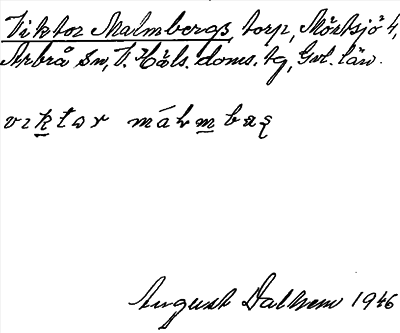 Viktor Malmbergs torp, Mörtsjö 4,
Arbrå sn, V. Häls. doms. tg, Gvl. län.
viktor málmbæȩ
August Dalhem 1946